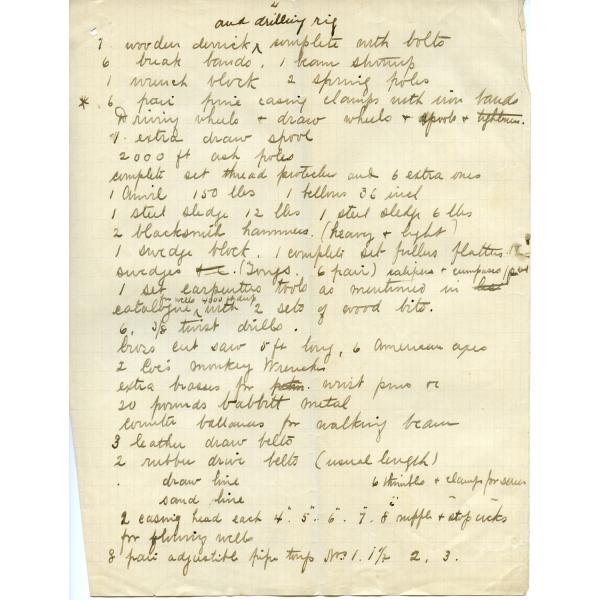 and drilling rig
7 wooden derrick ^ complete with bolts
6 break bands, 1 beam
1 wrench block 2 spring poles
* 6 pair pine casing clamps with iron bands
Driving wheels + draw wheels + spools +
4 extra draw spool
2000 ft ash poles
complete set thread protector and 6 extra ones
1 Anvil 150 lbs 1 bellows 36 inch
1 steel sledge 12 lbs 1 steel sledge 6 lbs
2 blacksmith hammers. (heavy + light)
1 swedge block, 1 complete set fullers flatters
swedges (Tongs. 6 pair) calipers + compases
1 set carpenters tools as mentioned in
for wells 4000 ft deep
catalogue ^ with 2 sets of wood bits.
6, 3/8 twist drills.
Cross cut saw 5 ft long, 6 American axes
2 Coe's monkey Wrenches
extra brasses for wrist pins
20 pounds babbitt metal
counter ballances for walking beam
3 leather draw belts
2 rubber drive belts (usual length)
draw line 6 thimbles + clamps for same
sand line
2 casing head each 4" 5" 6" 7" 8" nipples + stopcocks
for flowing wells
8 pair adjustible pipe tongs Nos. 1. 1 1/2 2, 3.